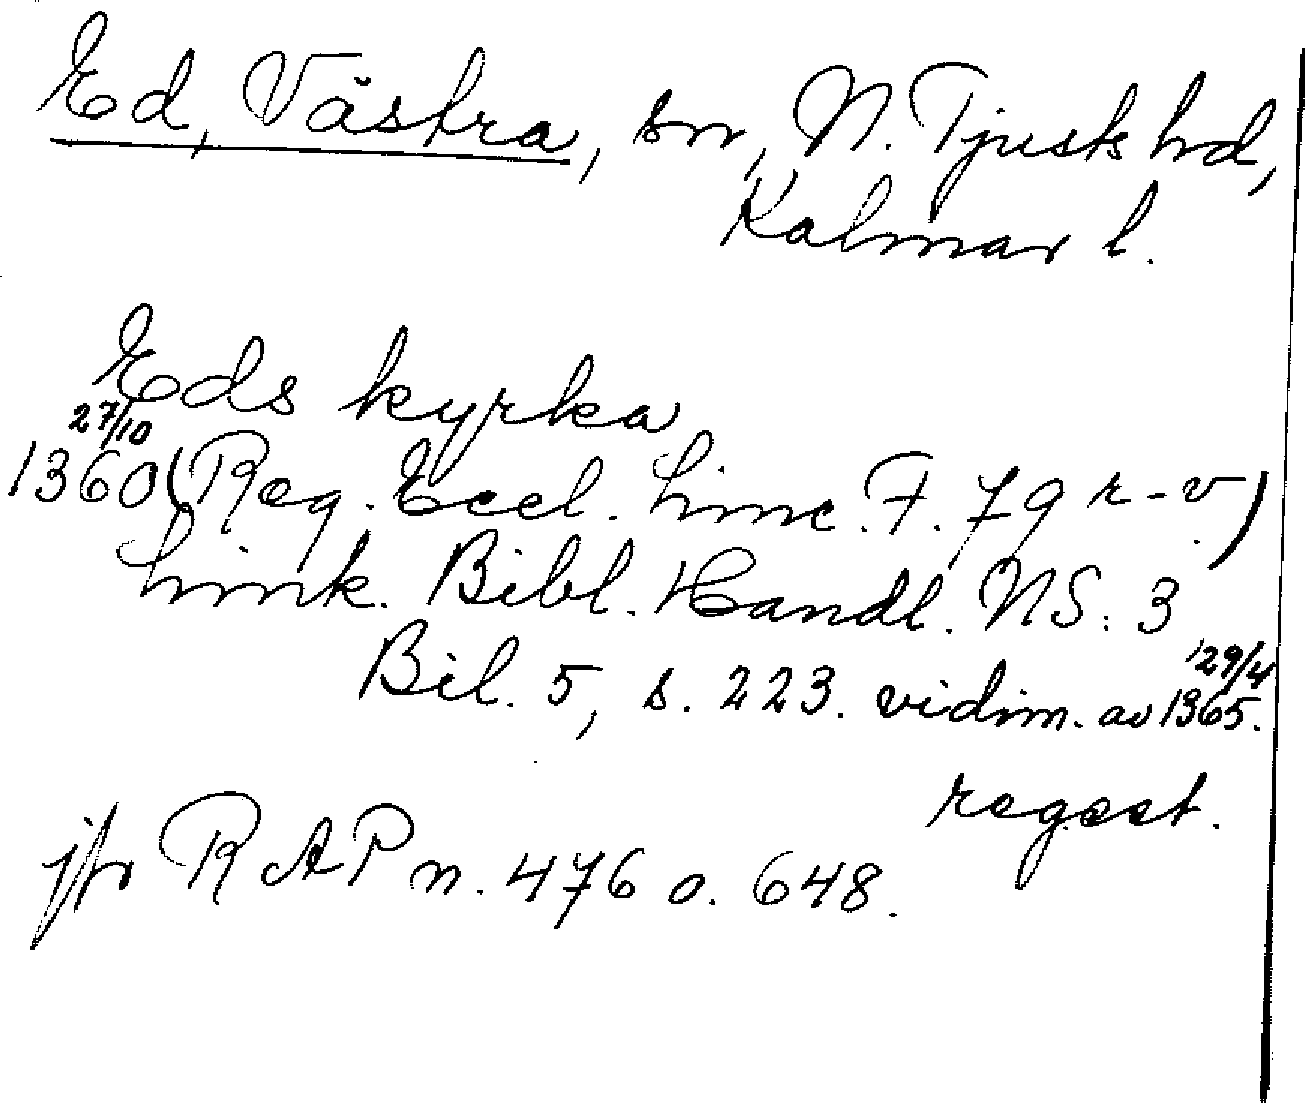 Ed, Västra, sn, N. Tjusts hd,
Kalmar l.
Eds kyrka
27/10
1360 (Reg. Eccl. Linc. F. 79 r-v.)
Link. Bibl. Handl. NS. 3
Bil. 5, s. 223. vidim. av 29/4 1365.
regest.
jfr RAP n. 476 o. 648.